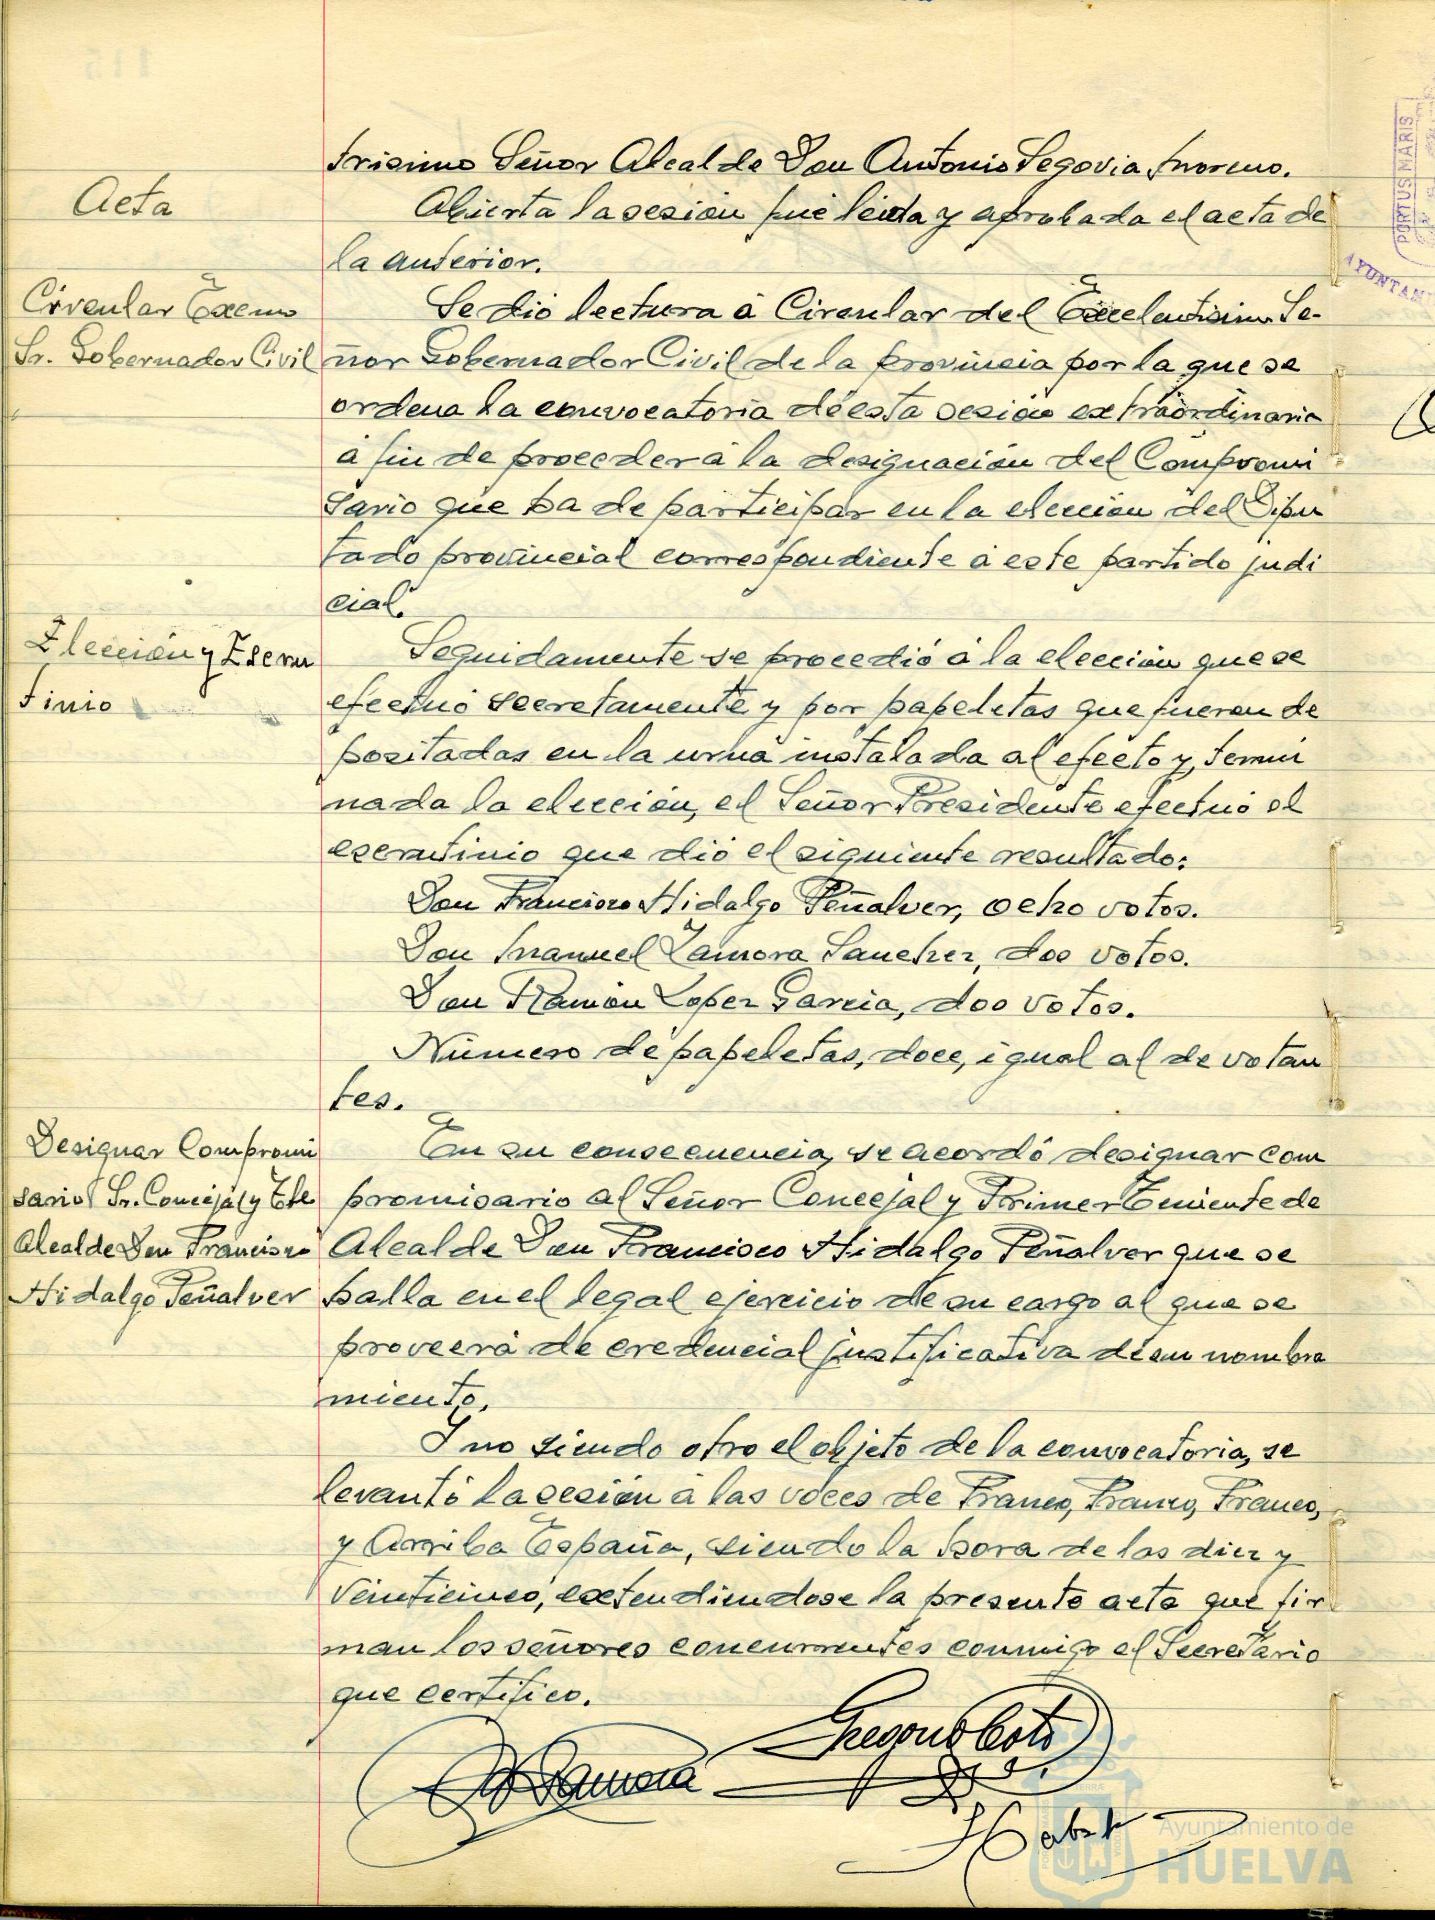 trisimo Señor Alcalde Don Antonio Segovia Moreno.
Acta
Abierta la sesión fué leida y aprobada el acta de
la anterior.
Circular Excmo
Sr. Gobernador Civil
Se dió lectura á Circular del Excelentisimo Se-
ñor Gobernador Civil de la provincia por la que se
ordena la convocatoria de esta sesión extraordinaria
á fin de proceder á la designación del Compromi
sario que ha de participar en la elección del Dipu
tado provincial correspondiente á este partido judi
cial.
Elección y Escru
tinio
Seguidamente se procedió á la elección que se
efectuó secretamente y por papeletas que fueron de
positadas en la urna instalada al efecto y, termi
nada la elección, el Señor Presidente efectuó el
escrutinio que dió el siguiente resultado:
Don Francisco Hidalgo Peñalver, ocho votos.
Don Manuel Zamora Sanchez, dos votos.
Don Ramón Lopez Garcia, dos votos.
Número de papeletas, doce, igual al de votan
tes.
Designar Compromi
sario Sr. Concejal y Tte
Alcalde Don Francisco
Hidalgo Peñalver
En su consecuencia, se acordó designar com
promisario al Señor Concejal y Primer Teniente de
Alcalde Don Francisco Hidalgo Peñalver que se
halla en el legal ejercicio de su cargo al que se
proveerá de credencial justificativa de su nombra
miento.
Y no siendo otro el objeto de la convocatoria, se
levantó la sesión á las voces de Franco, Franco, Franco,
y Arriba España, siendo la hora de las diez y
veinticinco, extendiendose la presente acta que fir
man los señores concurrentes conmigo el Secretario
que certifico.
Gregorio Coto
Zamora
PORTUS MARIS
AYUNTAM
Ayuntamiento de
HUELVA
115